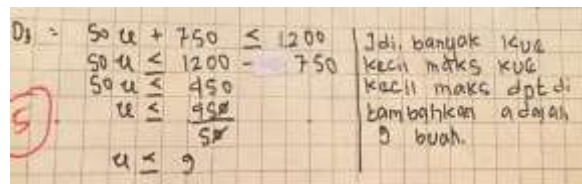 Dj = 50 u + 750 ≤ 1200
50 u ≤ 1200 - 750
50 u ≤ 450
u ≤ 450
50
u ≤ 9
5
Jdi, banyak kue
kecil maks kue
kecil maks dpt di
tambahkan adalah
9 buah.